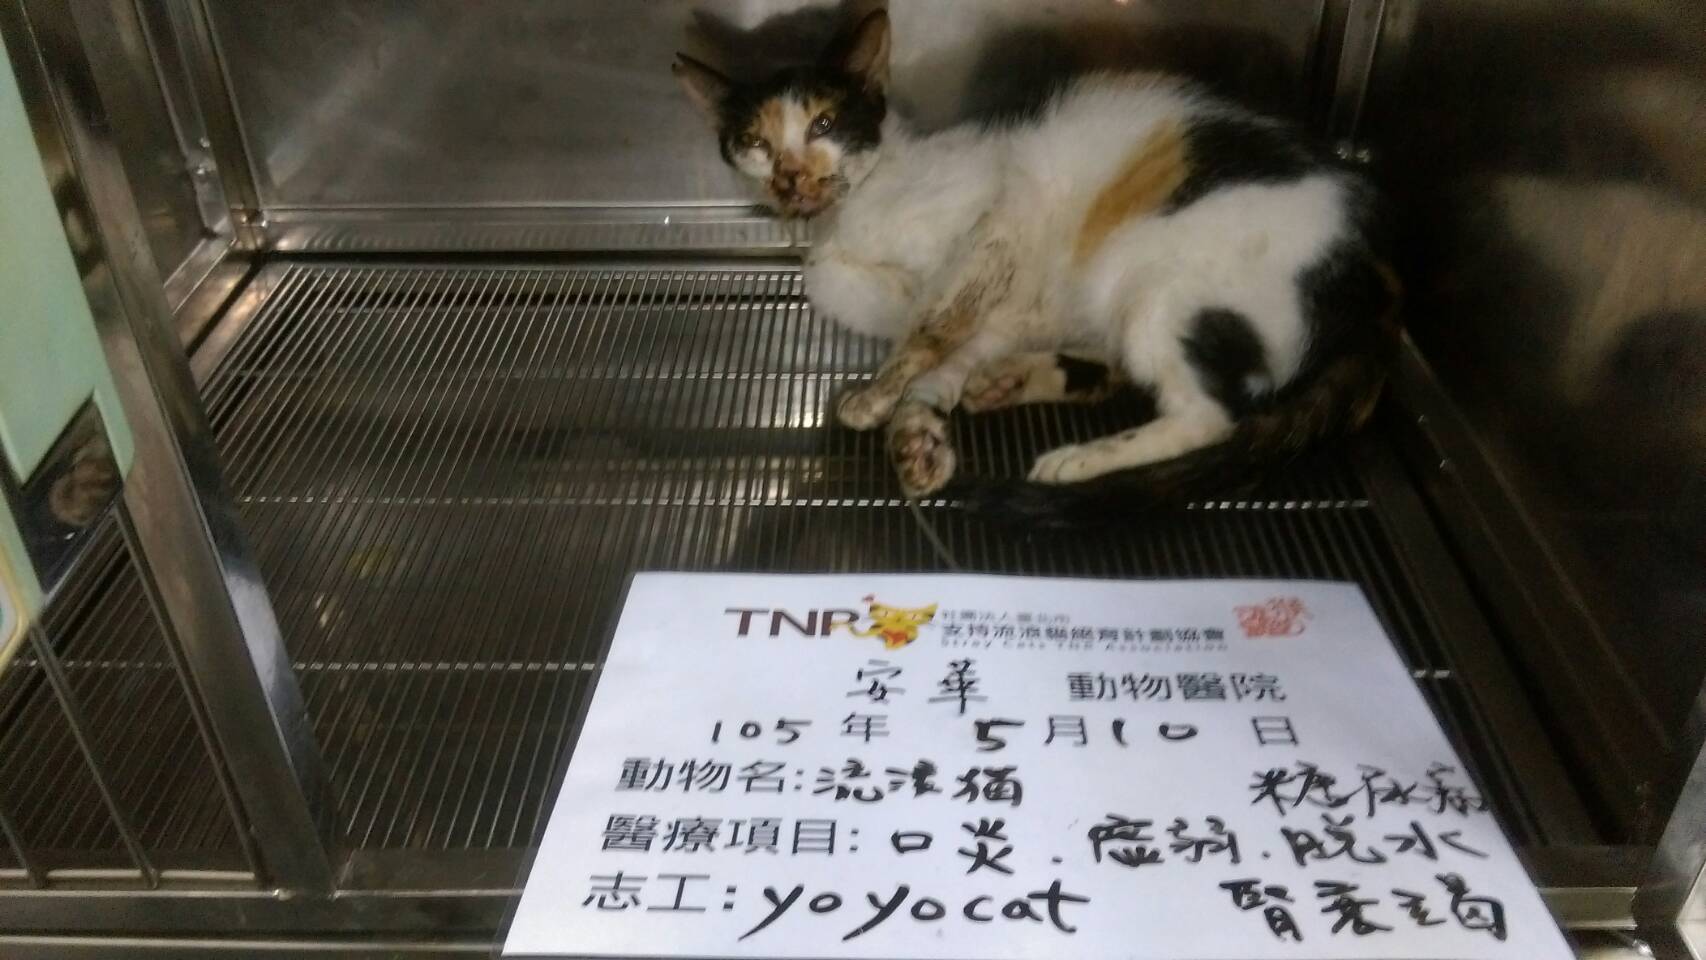 TNR 社團法人臺北市
支持流浪貓絕育計劃協會
Stray Cats TNR Association
安華 動物醫院
105年 5月10日
動物名:流浪猫 糖尿病
醫療項目:口炎.虛弱.脫水
志工:yoyocat 腎衰竭